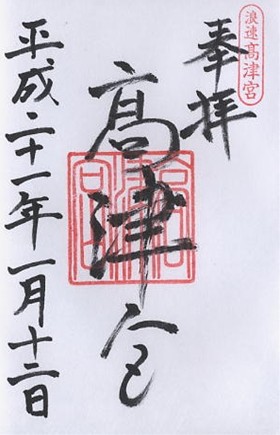 浪速高津宮
奉拝
髙津宮
平成二十一年一月十二日